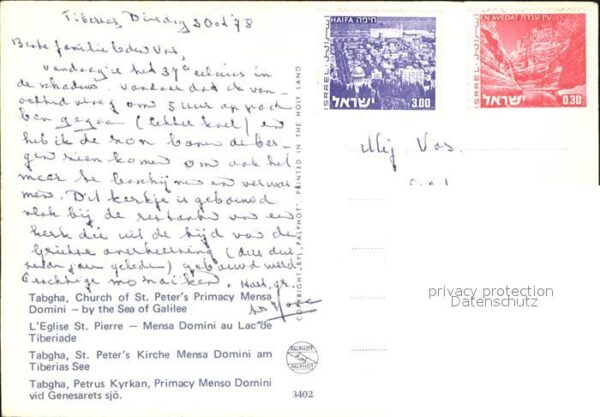 Tiberias, Dinsdag 3 Oct '78
Beste familie Vos,
Vandaag is het 37° celsius in
de schaduw. Vandaar dat ik van
ochtend vroeg om 5 uur op pad
ben gegaan (lekker koel) en
heb ik de zon boven de ber-
gen zien komen om ook het
meer te beschijnen en verwar
men. Dit kerkje is gebouwd
vlak bij de restanten van een
kerk die uit de tijd van de
Griekse overheersing (dus dui
zenden jaren geleden) gebouwd werd
mozaïken. Hart. gr.
Tabgha, Church of St. Peter's Primacy Mensa
Domini – by the Sea of Galilee
L'Eglise St. Pierre – Mensa Domini au Lac de
Tiberiade
Tabgha, St. Peter's Kirche Mensa Domini am
Tiberias See
Tabgha, Petrus Kyrkan, Primacy Menso Domini
vid Genesarets sjö.
3402
PALPHOT
PALPHOT
COPYRIGHT BY "PALPHOT" PRINTED IN THE HOLY LAND
HAIFA חיפה
ISRAEL
ישראל
3.00
EN AVEDAT עין עבדת
ISRAEL
ישראל
0.30
Mej Vos.
privacy protection
Datenschutz